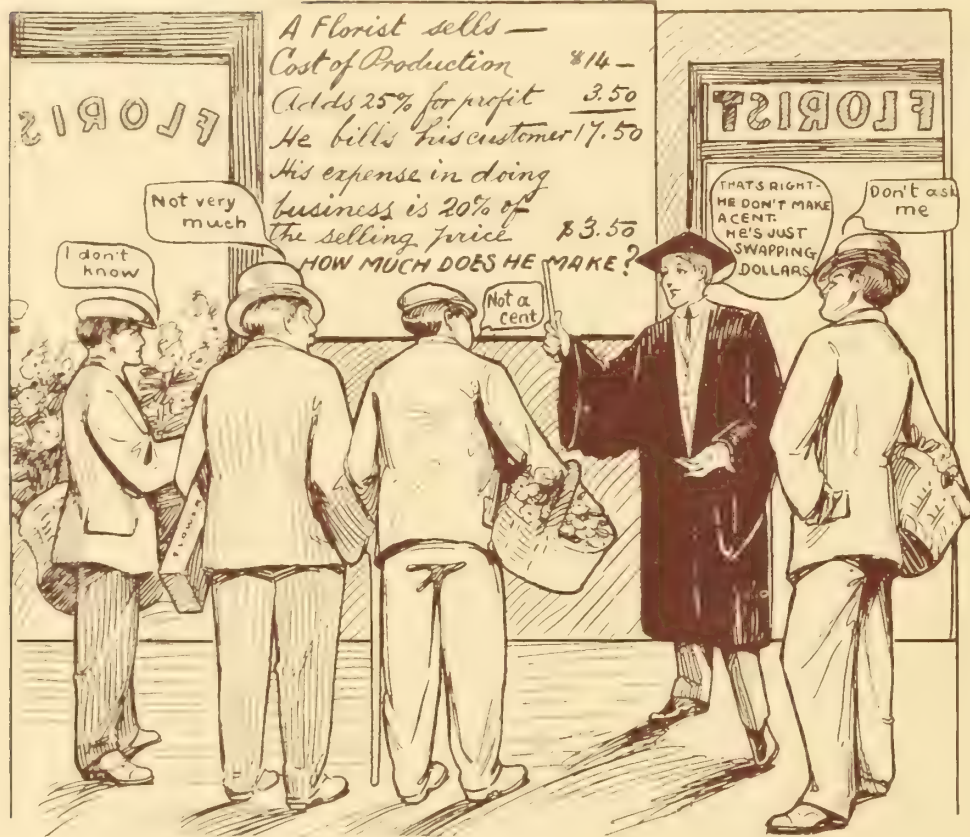 A Florist sells —
Cost of Production $14 —
Adds 25% for profit 3.50
He bills his customer 17.50
His expense in doing
business is 20% of
the selling price $3.50
HOW MUCH DOES HE MAKE?
FLORIS
FLORIST
I don't
know
Not very
much
Not a
cent
THAT'S RIGHT-
HE DON'T MAKE
A CENT.
HE'S JUST
SWAPPING
DOLLARS
Don't ask
me
FLOWERS